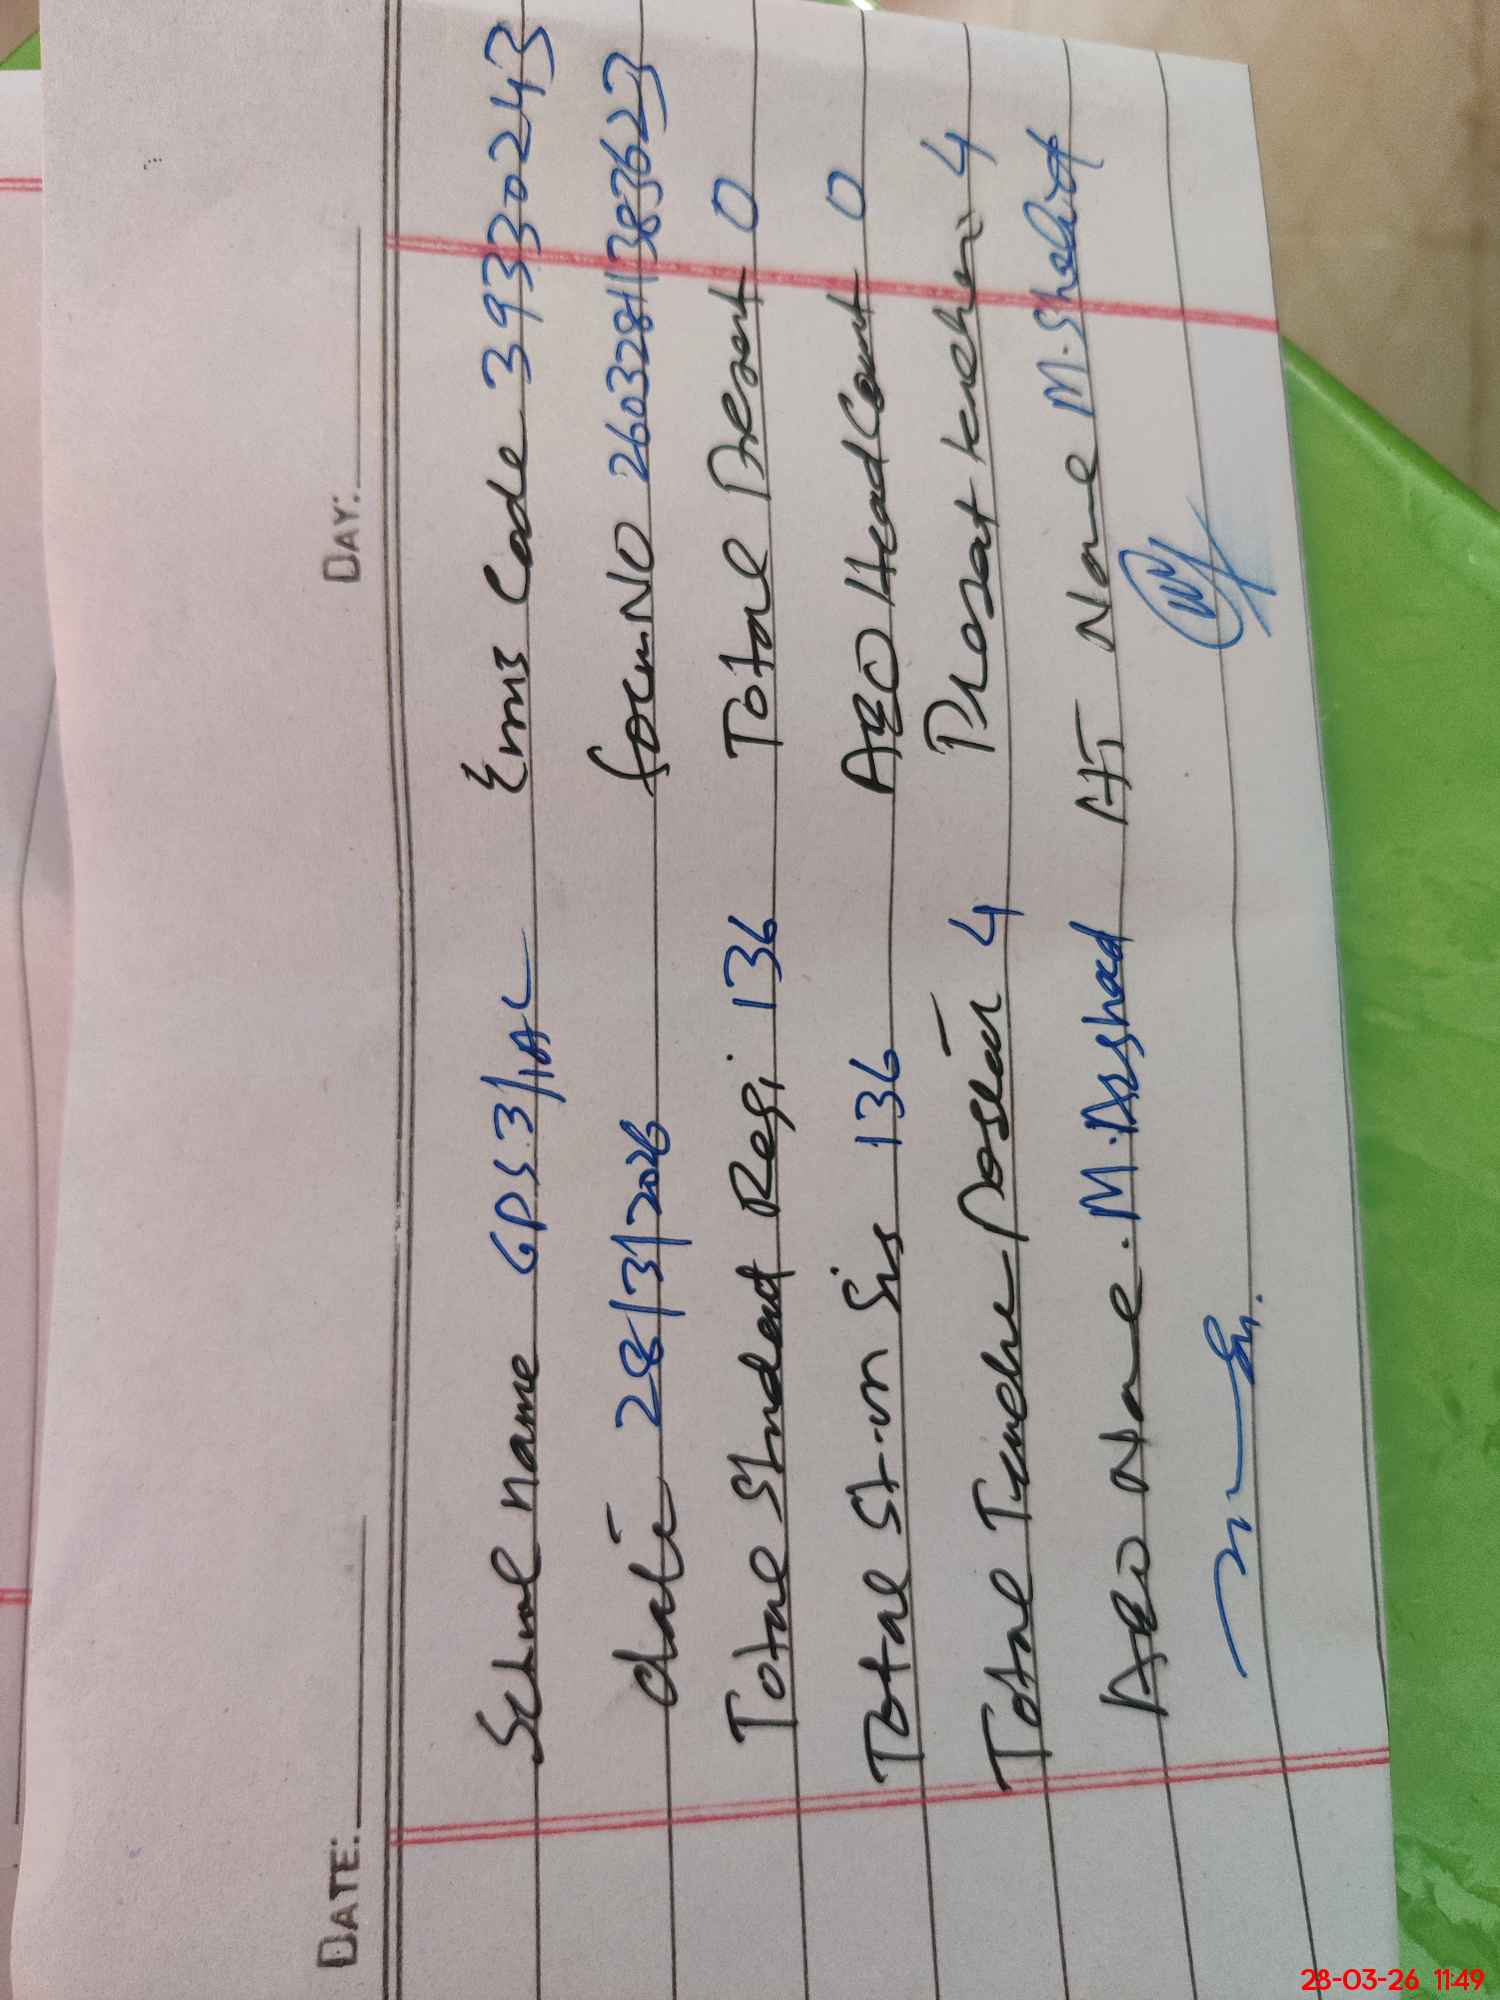 DATE: DAY:
School name GPS 3/1AL Emis Code 39330243
date 28/3/2026 form NO 26032811383623
Total Student Regi 136 Total Present 0
Total St-in Sis 136 AEO Head Count 0
Total Teacher Posted 4 Present teacher 4
AEO Name. M.Arshad HT Name M.Sharif
28-03-26 11:49